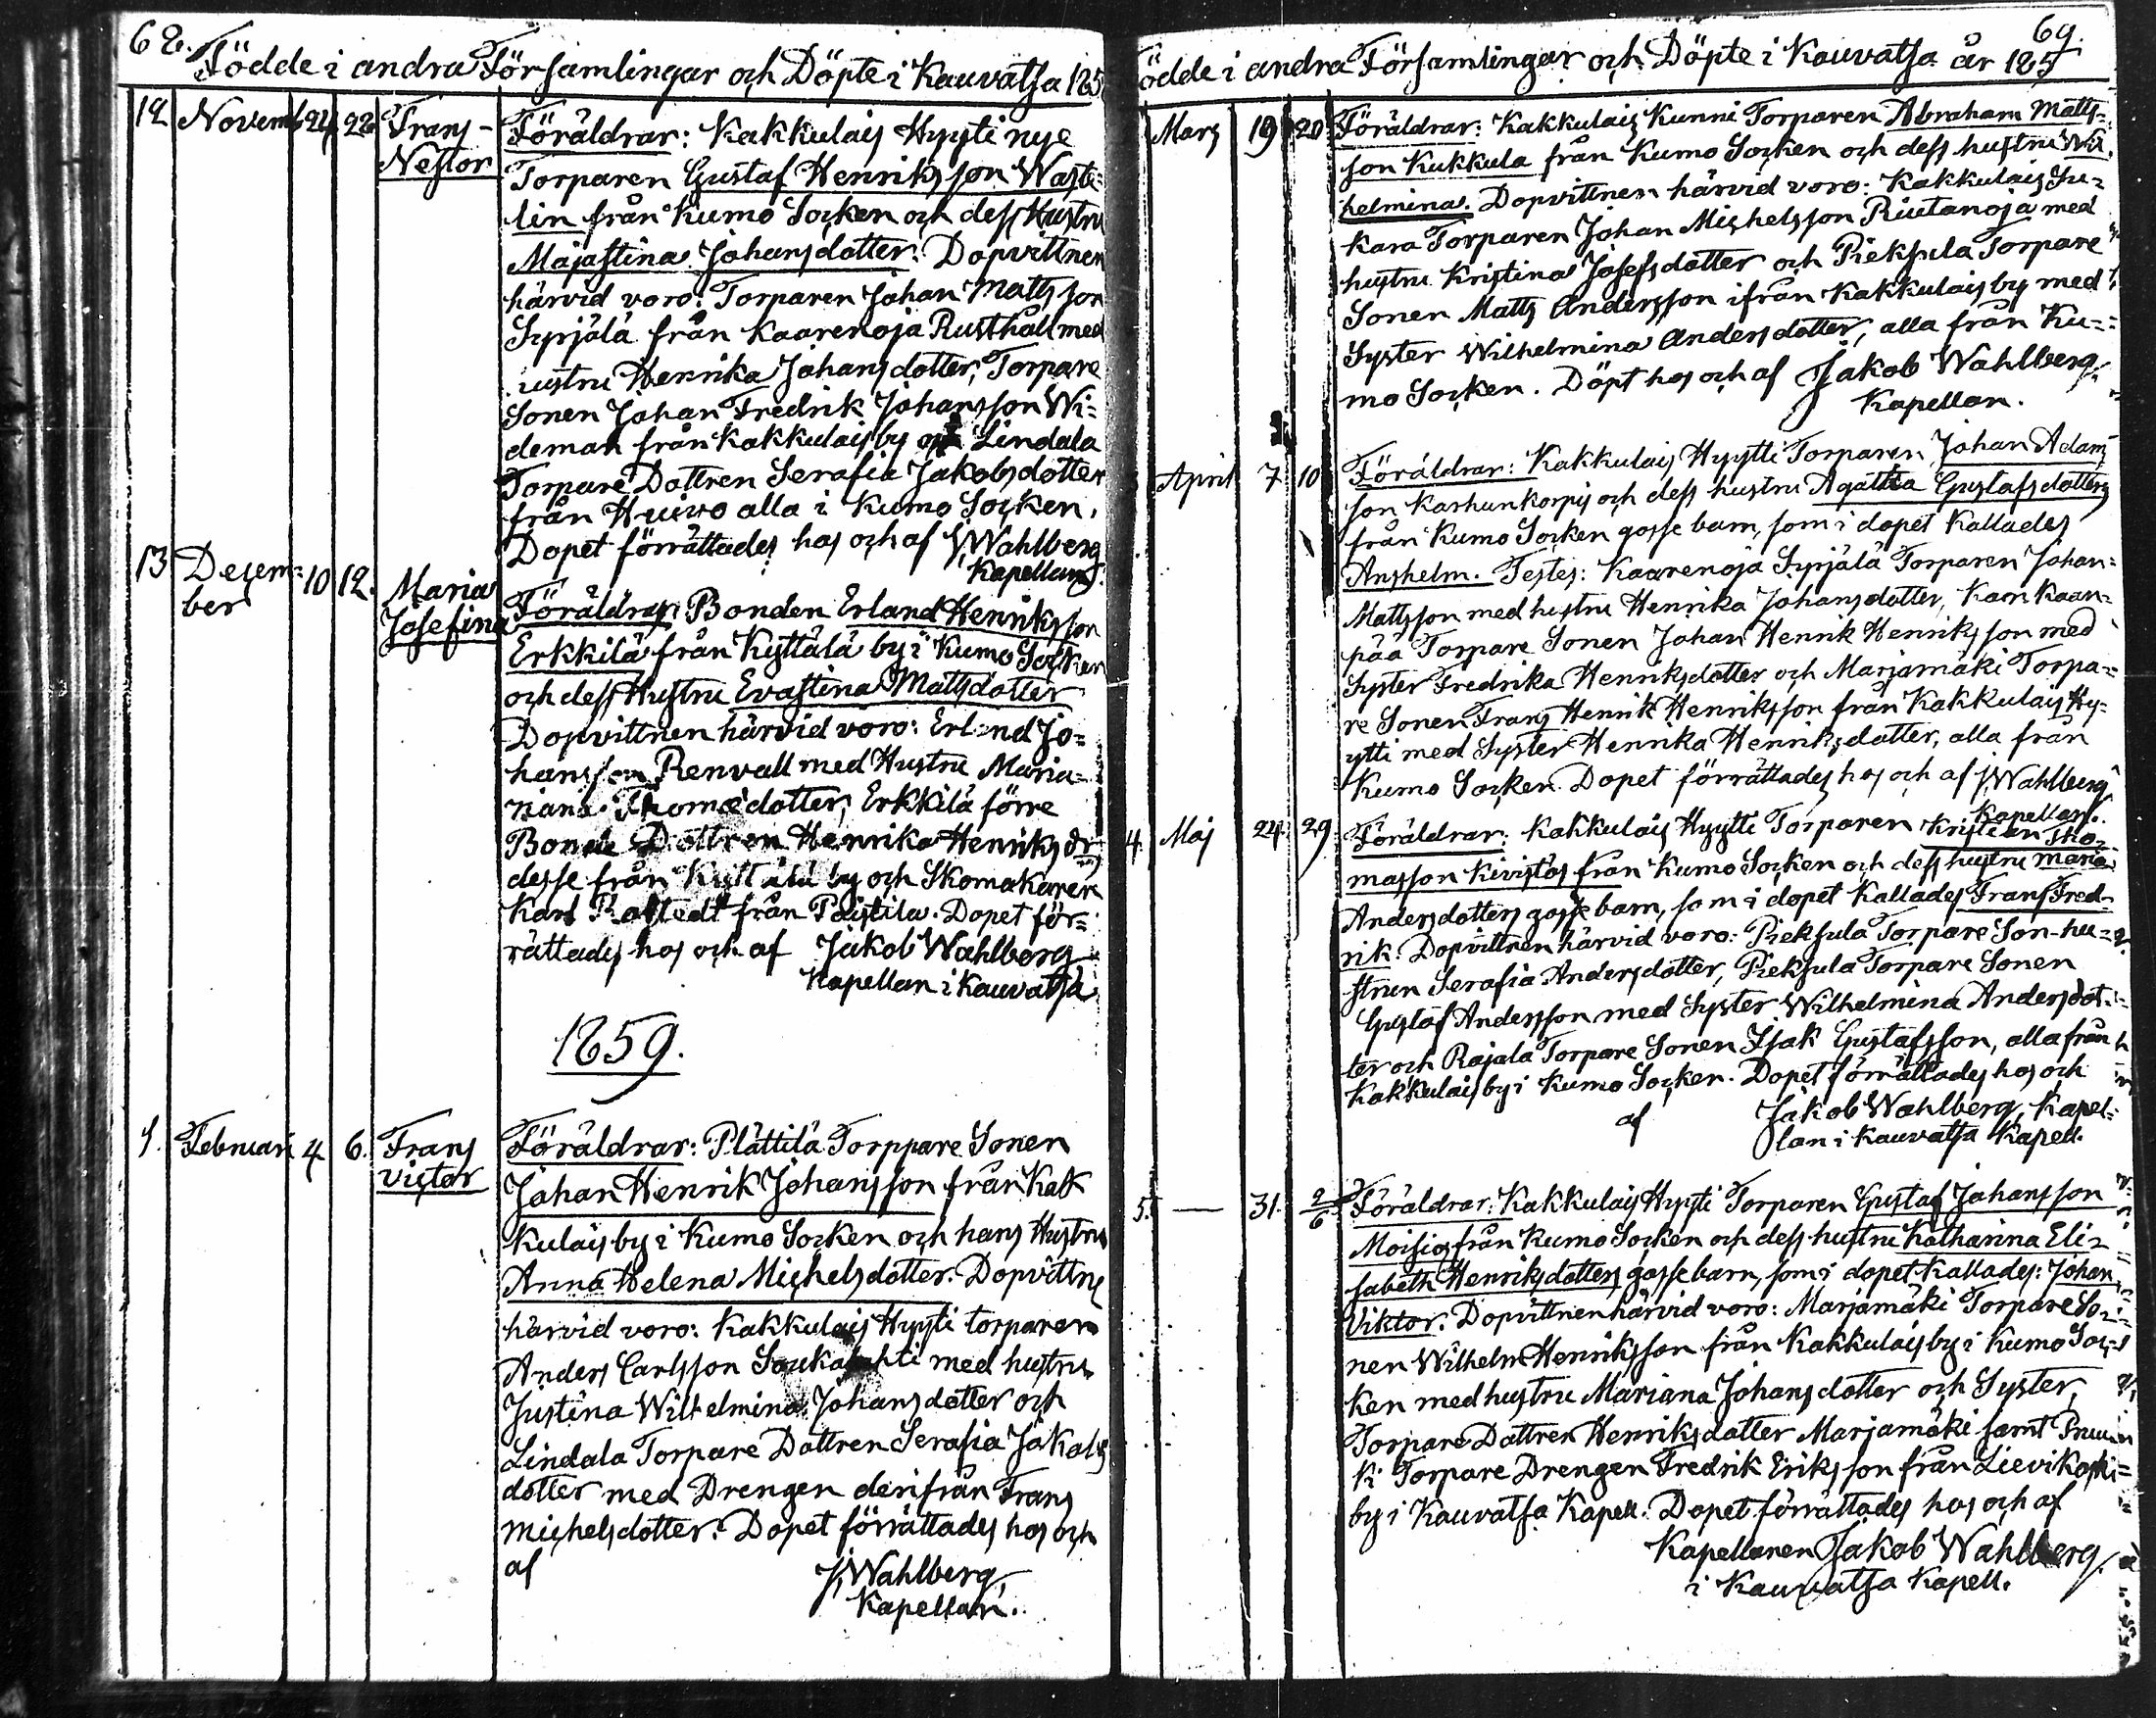 68.
Födde i andra Församlingar och Döpte i Kauvatsa 185
12 Novemb 21 22 Frans-
Nestor
Föräldrar: Kakkulais Hyyti nye
Torparen Gustaf Henriksson Waste-
lin från Kumo Socken och dess Hustru
Majastina Johansdotter. Dopvittnen
härvid voro: Torparen Johan Mattsson
Syrjälä från Kaarenoja Rusthåll med
ustru Henrika Johansdotter, Torpare
Sonen Johan Fredrik Johansson Wi=
deman från Kakkulais by och Lindala
Torpare Dottren Serafia Jakobsdotter
från Huivo alla i Kumo Socken.
Dopet förrättades hos och af J. Wahlberg
Kapellan.
13 Decem=
ber
10 12. Maria
Josefina
Föräldrar: Bonden Erland Henriksson
Erkkilä från Kyttälä by i Kumo Socken
och dess Hustru Evastina Mattsdotter
Dopvittnen härvid voro: Erland Jo=
hansson Renvall med Hustru Maria=
niana Thomædotter, Erkkilä förre
Bonde Dottren Henrika Henriksdr,
desse från Kyttälä by och Skomakaren
Karl Rostedt från Paistila. Dopet för=
rättades hos och af Jakob Wahlberg
Kapellan i Kauvatsa
1859.
1. Februari 4 6. Frans
Victor
Föräldrar: Plättilä Torppare Sonen
Johan Henrik Johansson från Kak
kulais by i Kumo Socken och hans Hustru
Anna Helena Michelsdotter. Dopvittne
härvid voro: Kakkulais Hyyti torparen
Anders Carlsson med hustru
Justina Wilhelmina Johansdotter och
Lindala Torpare Dottren Serafia Jakobs
dotter med Drengen derifrån Frans
Michelsdotter. Dopet förrättades hos och
af J. Wahlberg,
Kapellan.
69.
ödde i andra Församlingar och Döpte i Kauvatsa år 185
Mars 19 20 Föräldrar: Kakkulais Kunni Torparen Abraham Matts-
son Kukkula från Kumo Socken och dess hustru Wil
helmina. Dopvittnen härvid voro: Kakkulais Ju=
kara Torparen Johan Michelsson Riutanoja med
hustru Kristina Josefsdotter och Pieksula Torpare
Sonen Matts Andersson ifrån Kakkulais by med
Syster Wilhelmina Andersdotter, alla från Ku=
mo Socken. Döpt hos och af Jakob Wahlberg,
Kapellan.
April 7 10 Föräldrar: Kakkulais Hyytti Torparen Johan Adams
son Karhunkorpis och dess hustru Agatha Gustafsdotters
från Kumo Socken gosse barn, som i dopet kallades
Anshelm. Testes: Kaarenoja Syrjälä Torparen Johan=
Mattsson med hustru Henrika Johansdotter, Karn Kaan=
pää Torpare Sonen Johan Henrik Henriksson med
Syster Fredrika Henriksdotter och Marjamäki Torpa=
re Sonen Frans Henrik Henriksson från Kakkulais Hy=
ytti med Syster Henrika Henriksdotter, alla från
Kumo Socken. Dopet förrättades hos och af J. Wahlberg
Kapellan.
4. Maj 24. 29. Föräldrar: Kakkulais Hyytti Torparen Kristian Tho=
masson Kivistös från Kumo Socken och dess hustru Maria
Andersdotters gosse barn, som i dopet kallades Frans Fred-
rik. Dopvittnen härvid voro: Pieksula Torpare Son-hu=
strun Serafia Andersdotter, Pieksula Torpare Sonen
Gustaf Andersson med Syster Wilhelmina Andersdot=
ter och Rajala Torpare Sonen Isak Gustafsson, alla från
Kakkulais by i Kumo Socken. Dopet förrättades hos och
af Jakob Wahlberg, Kapel=
lan i Kauvatsa Kapell.
5. — 31. 2/6 Föräldrar: Kakkulais Hyyti Torparen Gustaf Johansson
Moisios från Kumo Socken och dess hustru Katharina Eli=
sabeth Henriksdotters gosse barn, som i dopet kallades: Johan
Viktor. Dopvittnen härvid voro: Marjamäki Torpare So=
nen Wilhelm Henriksson från Kakkulais by i Kumo Soc=
ken med hustru Mariana Johansdotter och Syster,
Torpare Dottren Henriksdotter Marjamäki samt Pruu
ki Torpare Drengen Fredrik Eriksson från Lievikoski
by i Kauvatsa Kapell. Dopet förrättades hos och af
Kapellanen Jakob Wahlberg.
i Kauvatsa Kapell.